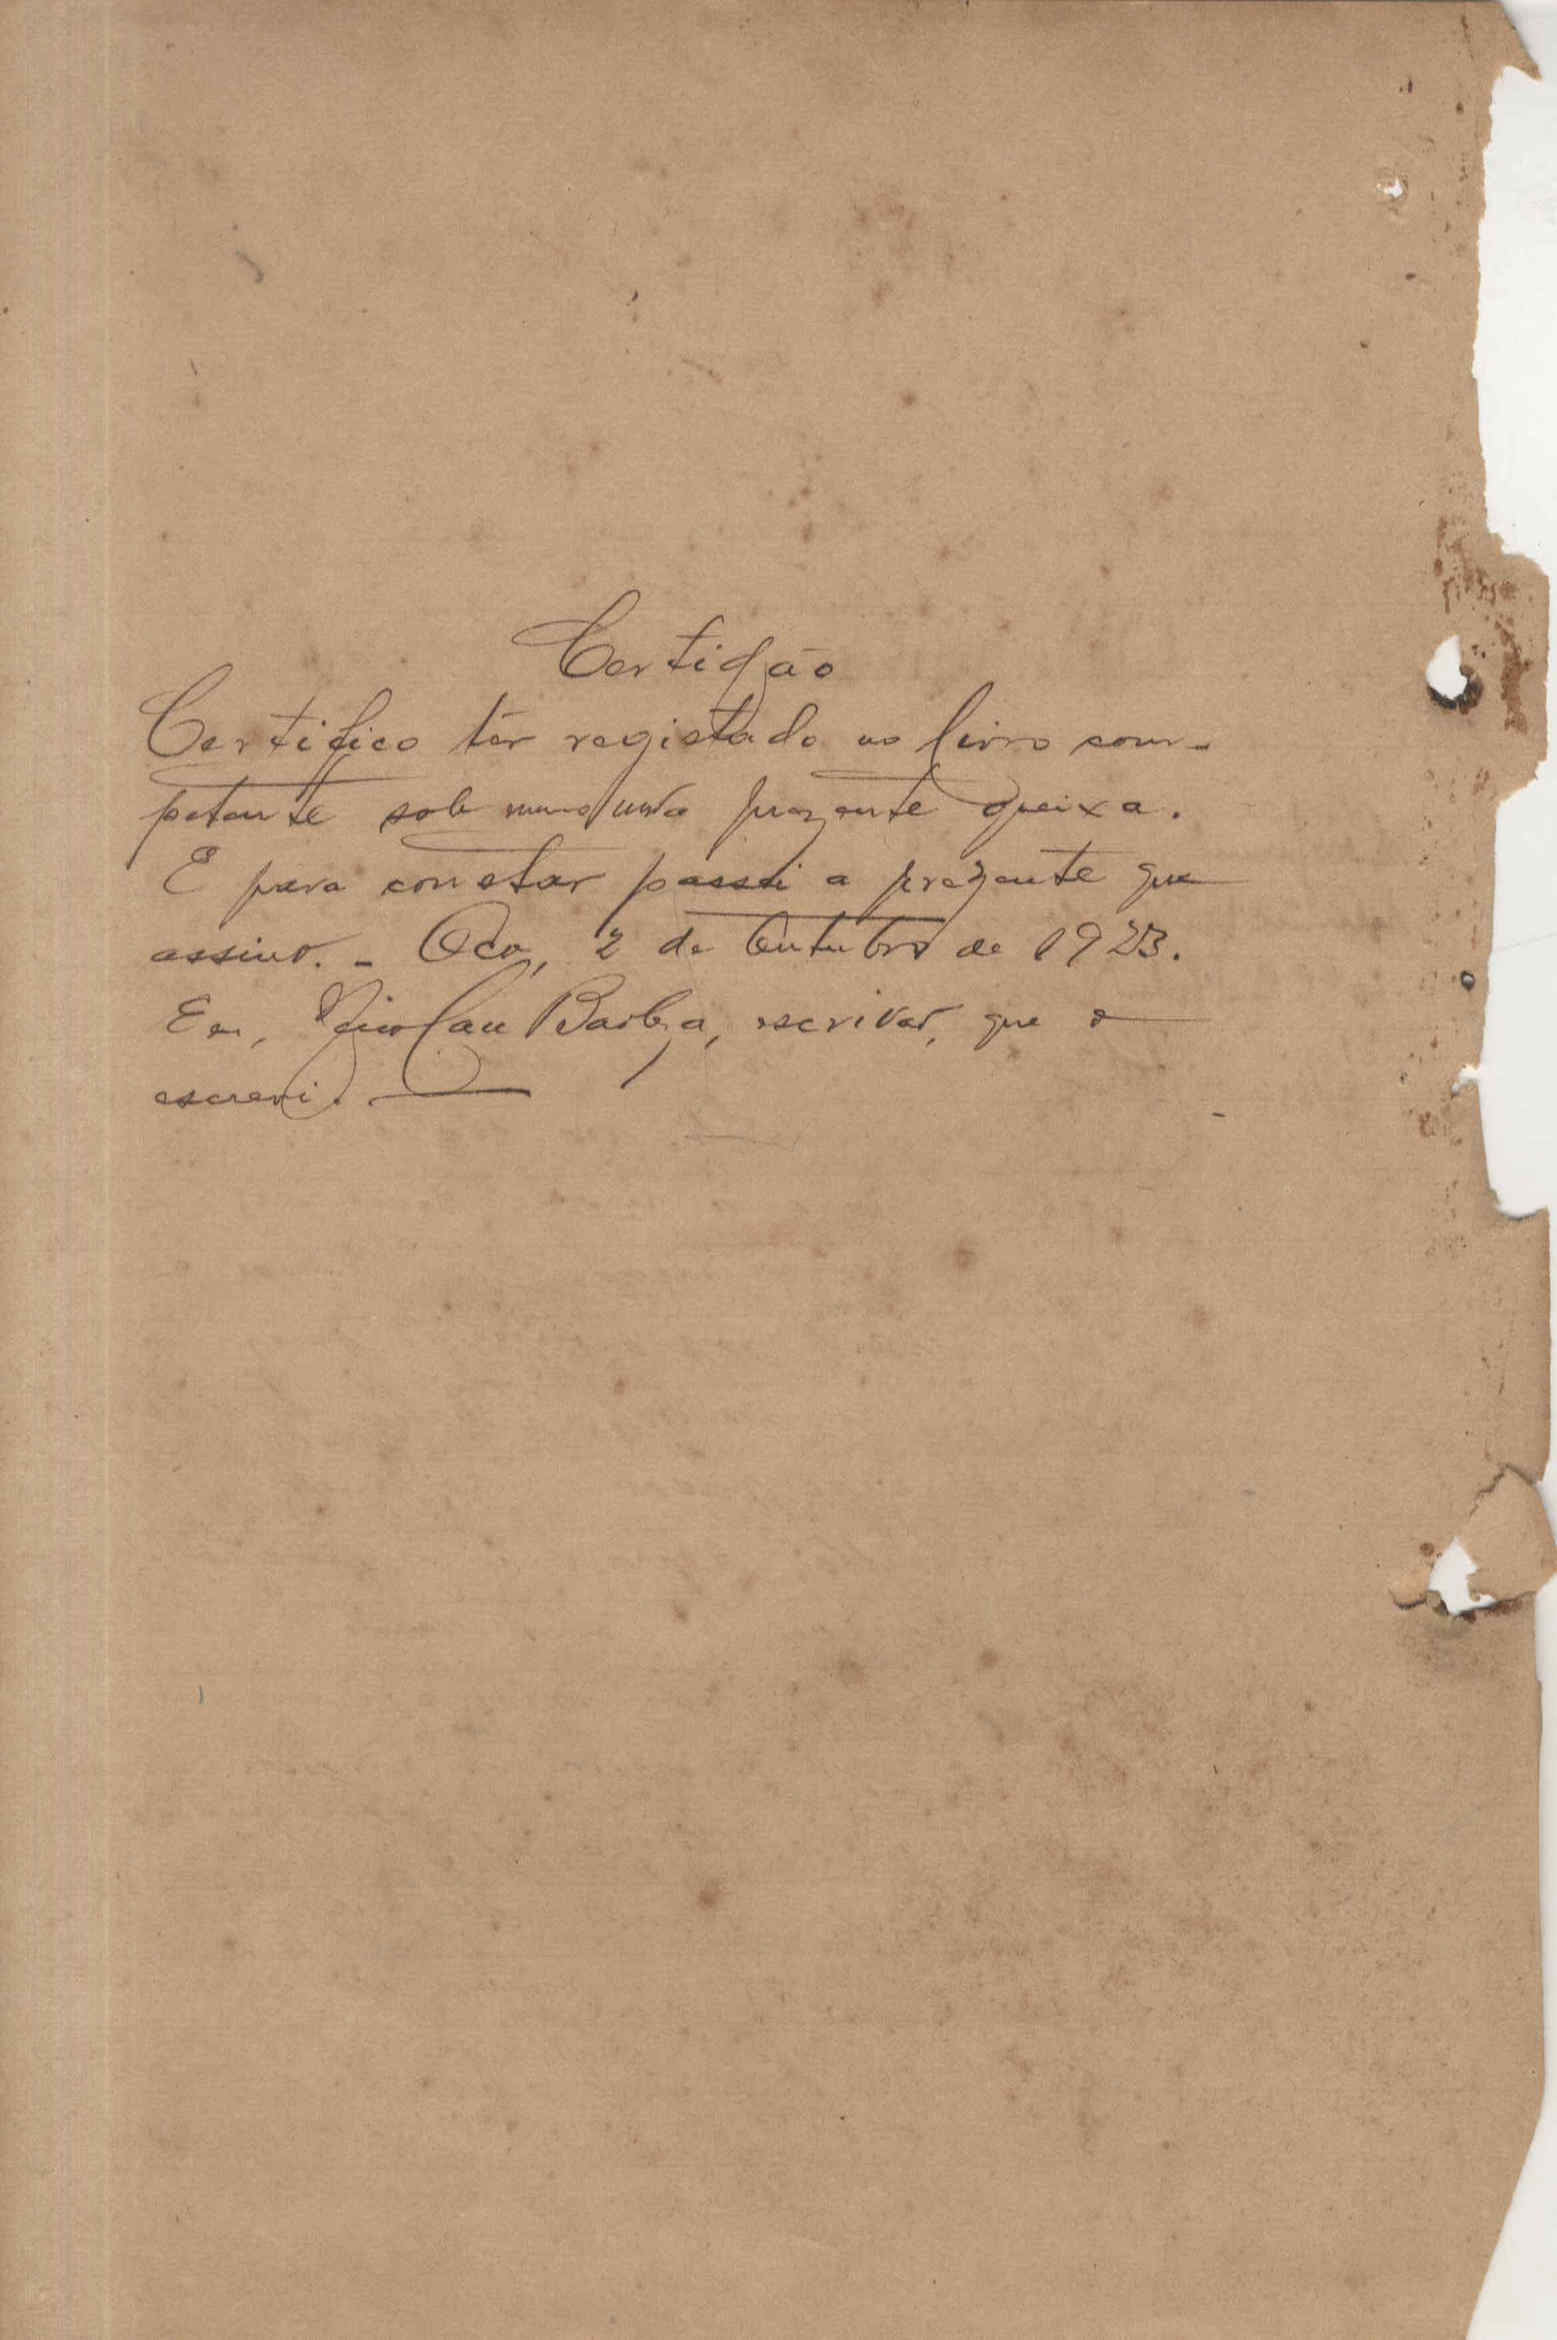 Certidão
Certifico ter registado no livro com-
petente sob a prezente queixa.
E para constar passei a prezente que
assino. - 2 de Outubro de 1923.
Eu, Nicolau Barboza, escrivão, que o
escrevi.